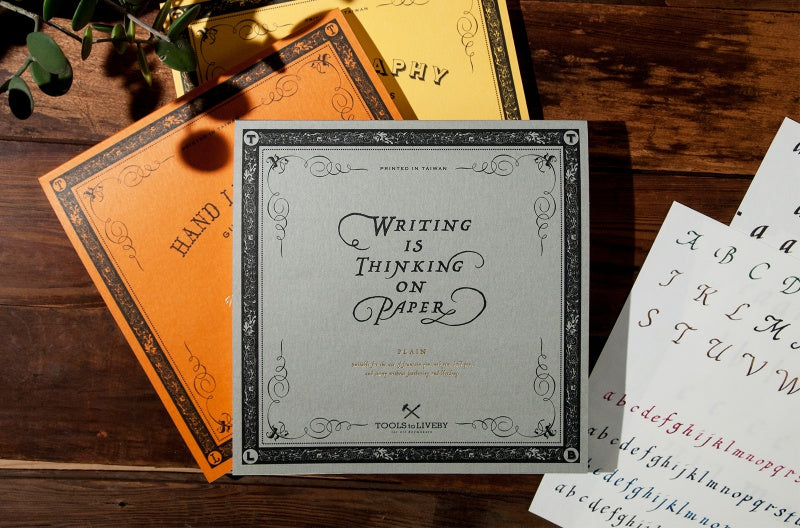 APHY
T
HAND L
T
T
PRINTED IN TAIWAN
WRITING
IS
THINKING
ON
PAPER
PLAIN
TOOLS to LIVEBY
L
B
L
a a
A B C D
J K L M
S T U V W
abcdefghijklmnopqrs
abcdefghijklmnopqrst
abcdefghijklmnopqrs